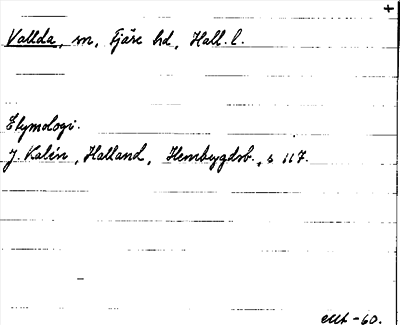 +
Vallda, sn, Fjäre hd, Hall. l.
Etymologi.
J. Kalén, Halland, Hembygdsb., s 117.
-60.